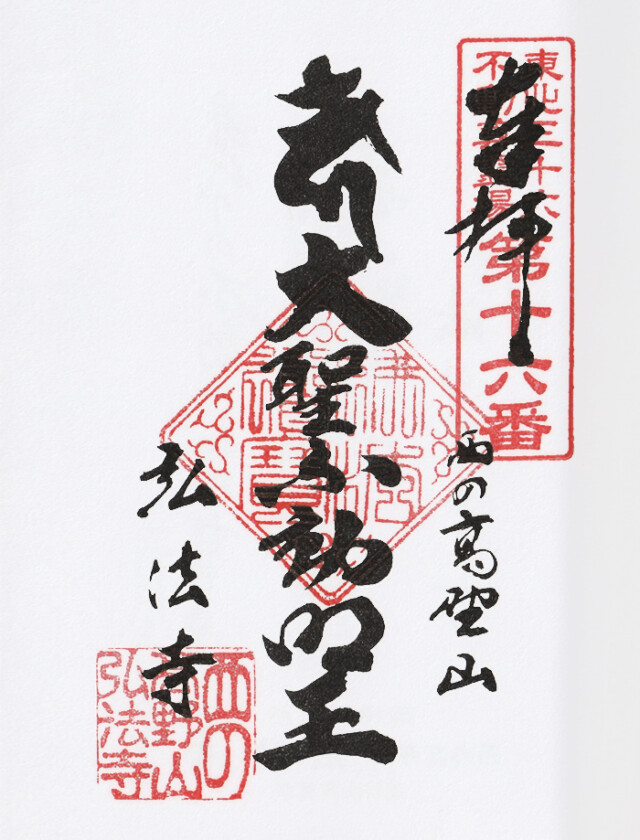 東北三十六
不動尊霊場
第十六番
奉拝
西の高野山
大聖不動明王
弘法寺
佛法
僧寶
西の
高野山
弘法寺